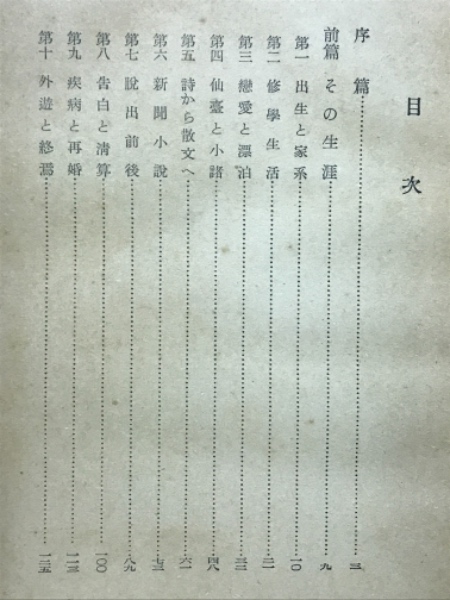 目次
序篇……三
前篇 その生涯……九
第一 出生と家系……一〇
第二 修學生活……二一
第三 戀愛と漂泊……三三
第四 仙臺と小諸……四八
第五 詩から散文へ……六一
第六 新聞小說……七三
第七 脫出前後……八九
第八 告白と淸算……一〇〇
第九 疾病と再婚……一一三
第十 外遊と終焉……一二五